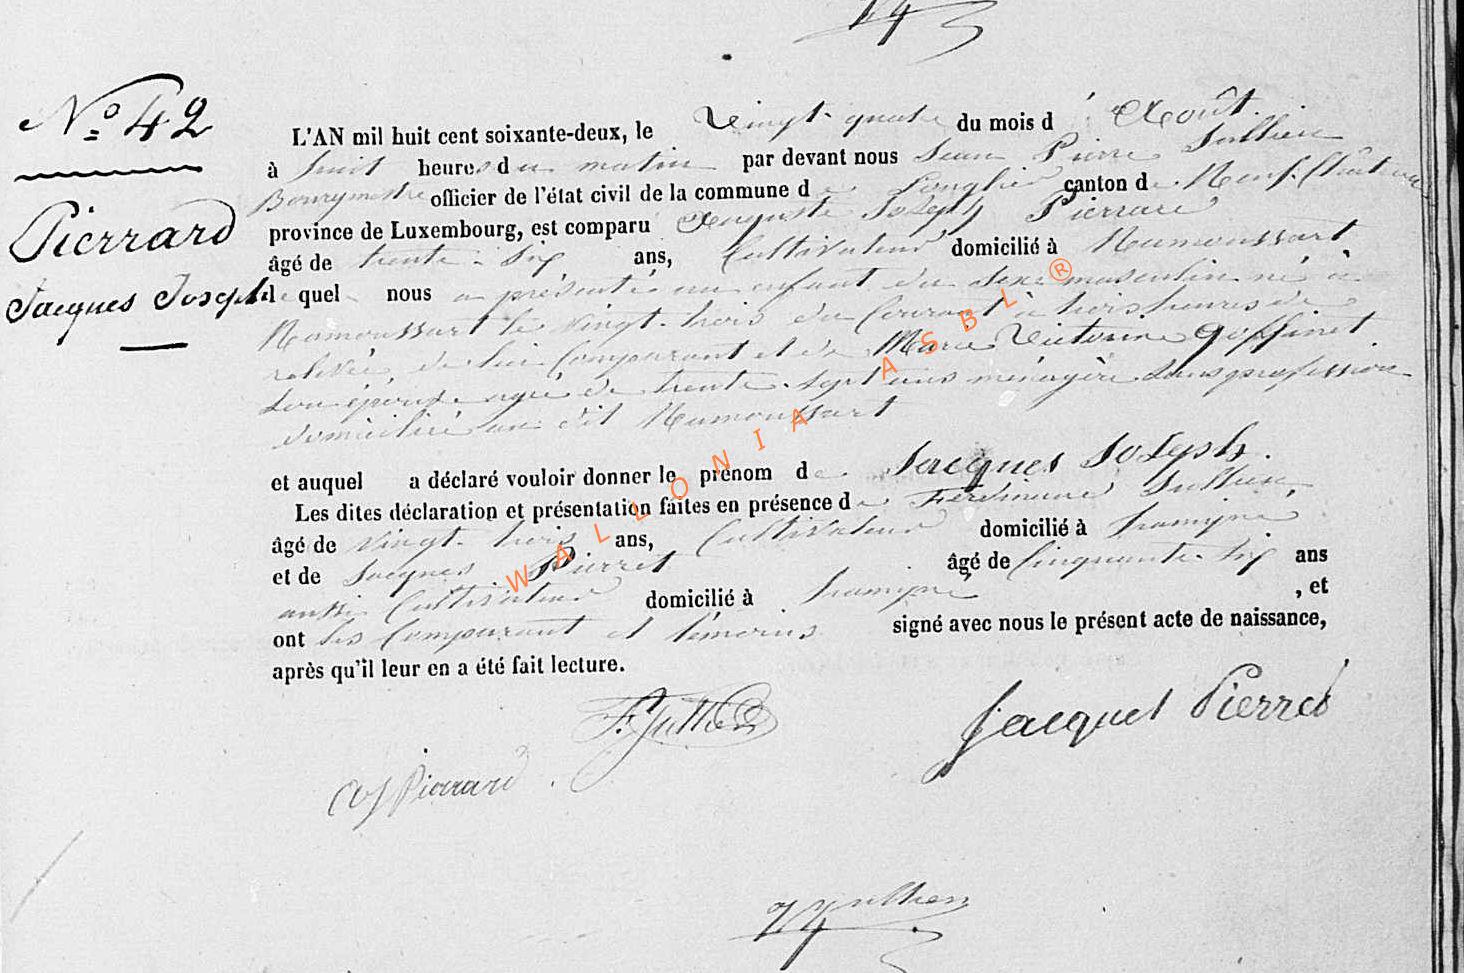 N° 42
Pierrard
Jacques Joseph
L'AN mil huit cent soixante-deux, le Vingt-quatre du mois d'Août
à huit heures du matin par devant nous Jean Pierre Jullien
Bourgmestre officier de l'état civil de la commune de Longlier canton de Neufchâteau
province de Luxembourg, est comparu Auguste Joseph Pierrard
âgé de trente-six ans, Cultivateur domicilié à Namoussart
lequel nous a présenté un enfant du sexe masculin né à
Namoussart le vingt-trois du courant à trois heures de
relevée, de lui Comparant et de Marie Victorine Goffinet
son épouse agée de trente-sept ans ménagère sans profession
domiciliée au dit Namoussart
et auquel a déclaré vouloir donner le prénom de Jacques Joseph.
Les dites déclaration et présentation faites en présence de Ferdinand Jullien
âgé de vingt-trois ans, Cultivateur domicilié à Tramogne
et de Jacques Pierret âgé de Cinquante-six ans
aussi Cultivateur domicilié à Tramogne , et
ont les Comparant et témoins signé avec nous le présent acte de naissance,
après qu'il leur en a été fait lecture.
F. Jullien
Jacques Pierret
AJ Pierrard
JP Jullien
WALLONIA ASBL ®